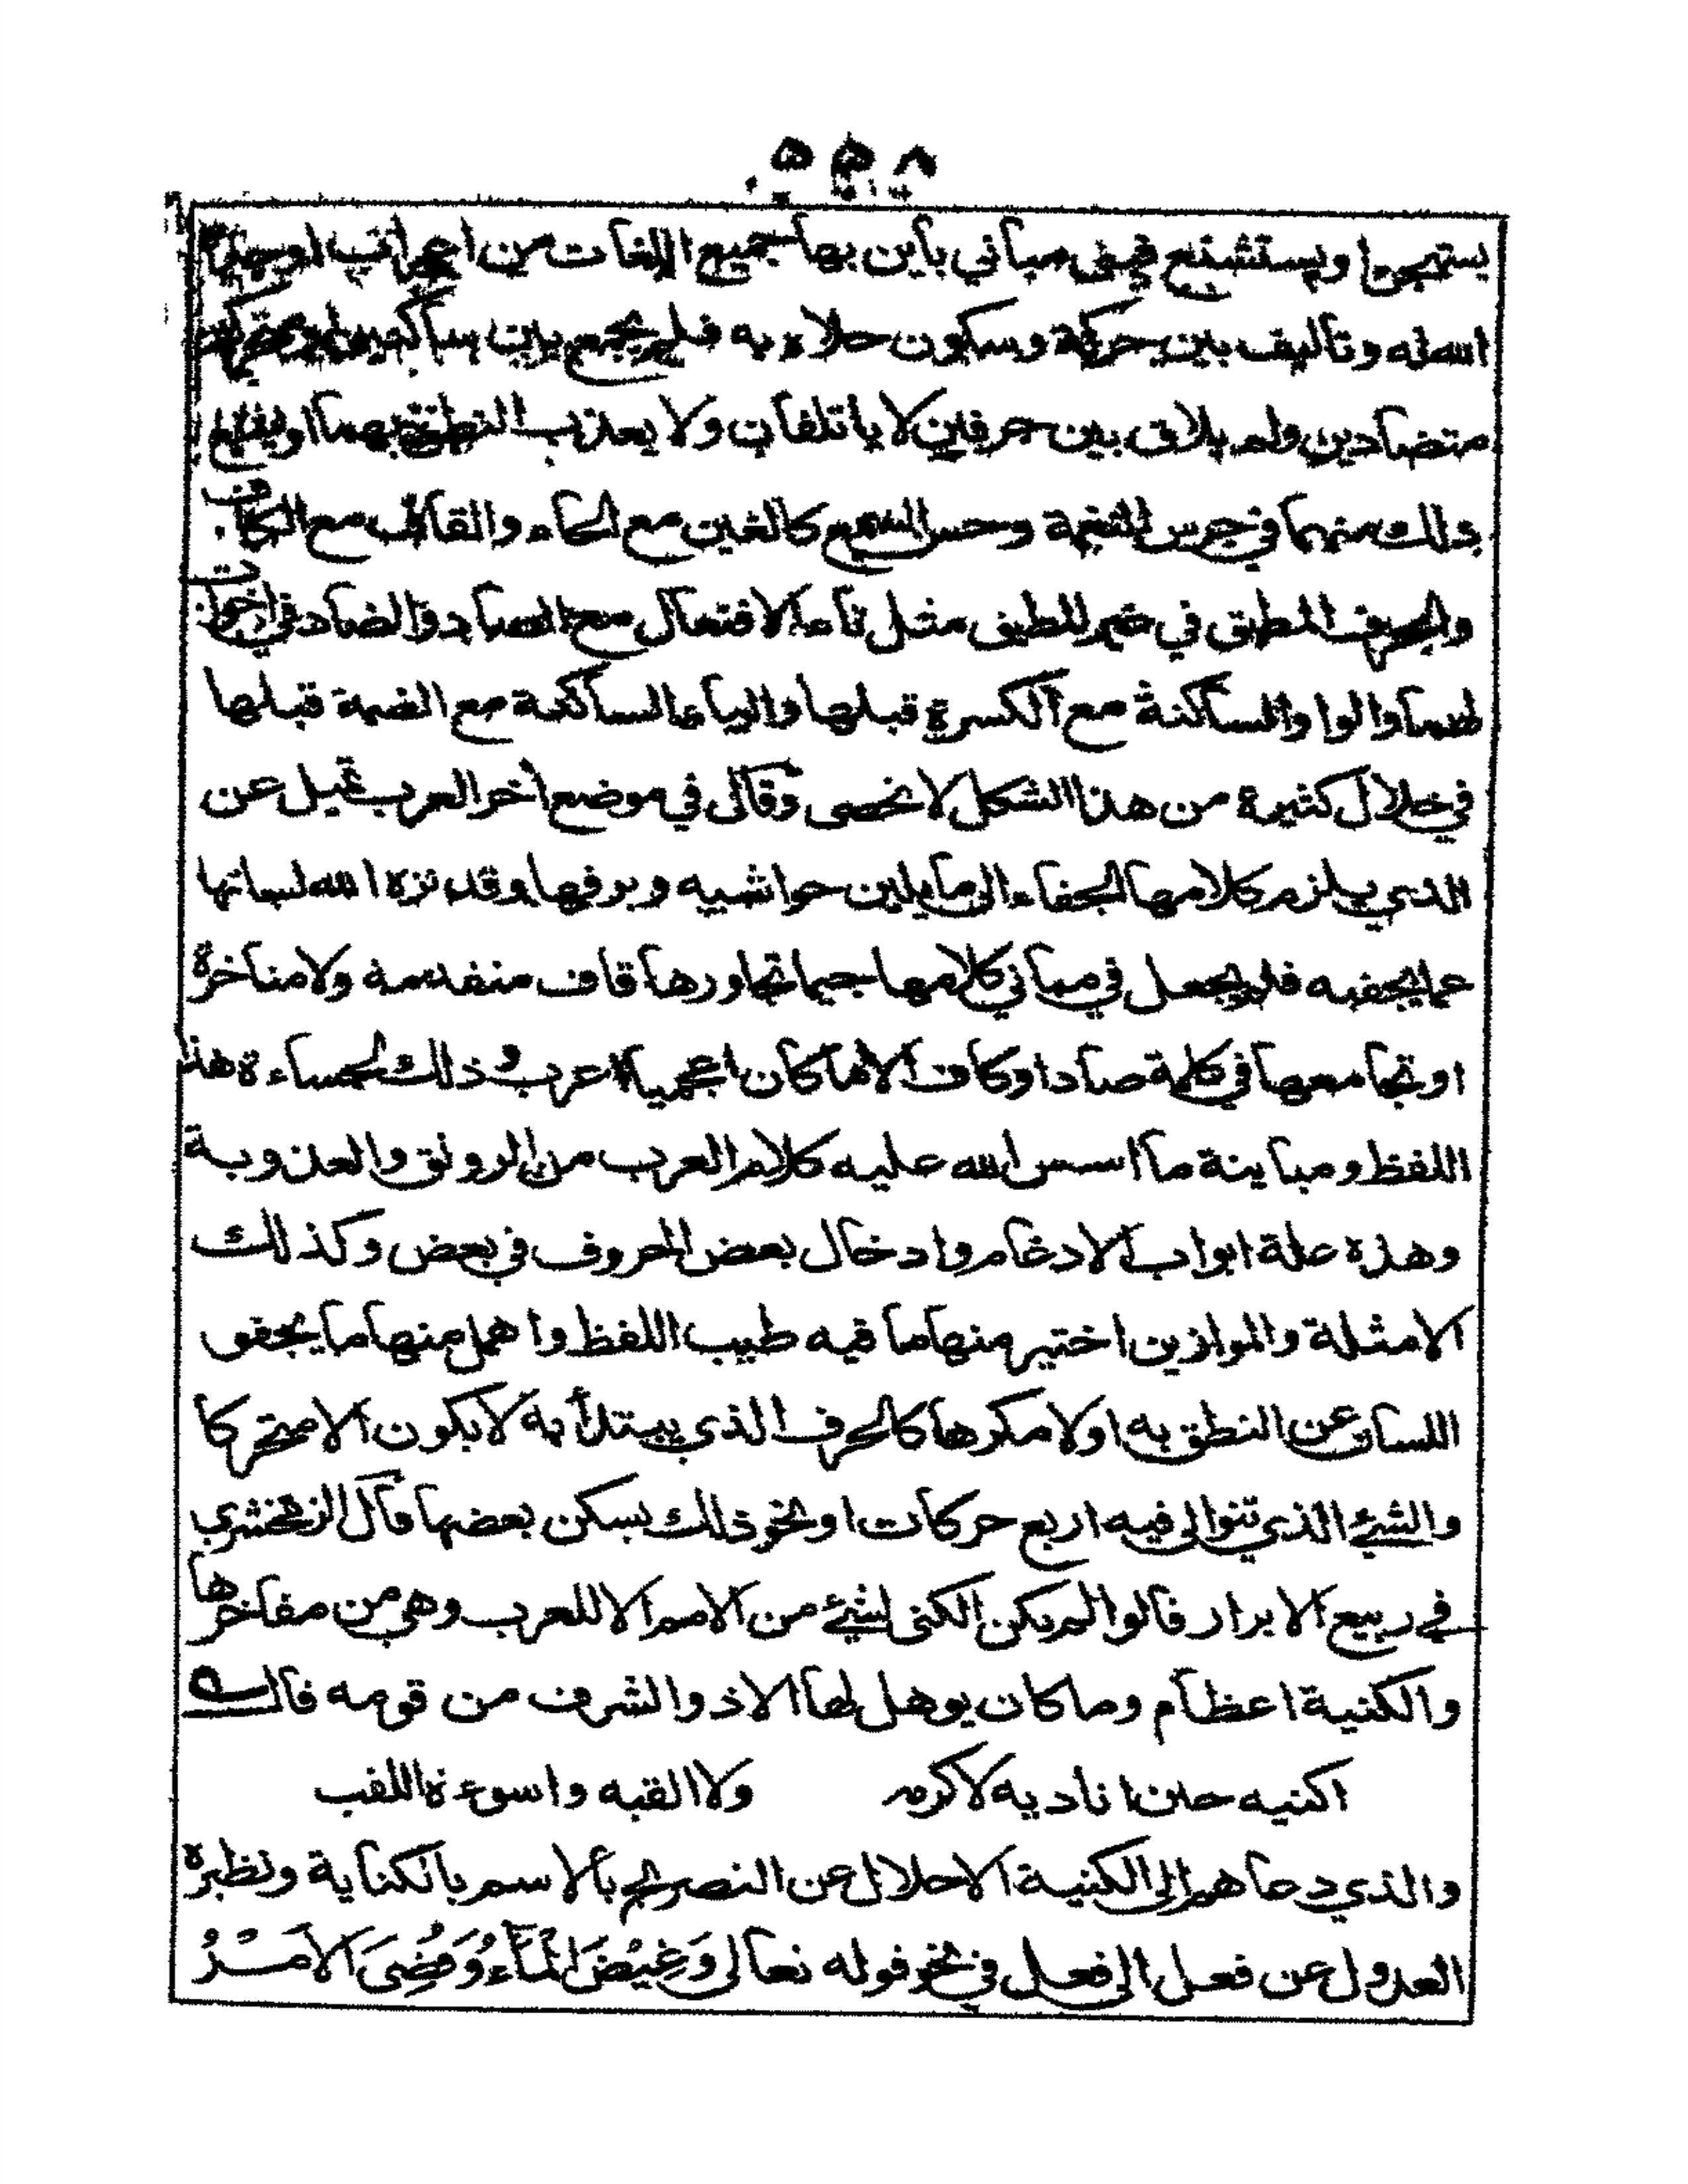 يستهجن او يستشنع فبنى مباني باين بها جميع اللغات من اعراب اوجده
الله له وتاليف بين حركة وسكون حلاه به فلم يجمع بين ساكنين او متحركين
متضادين ولم يلاق بين حرفين لا ياتلفان ولا يعذب النطق بهما او يشنع
ذلك منهما في جرس النغمة وحس السمع كالغين مع الحاء والقاف مع الكاف
والحرف المطبق في غير المطبق مثل تاء الافتعال مع الصاد والضاد في اخوات
لهما والواو الساكنة مع الكسرة قبلها والياء الساكنة مع الضمة قبلها
في خلال كثيرة من هذا الشكل لا تحصى وقال في موضع آخر العرب تميل عن
الذي يلزم كلامها الجفاء الى ما يلين حواشيه ويرقها وقد نزه الله لسانها
عما يجفيه فلم يجعل في مباني كلامها جيما تجاورها قاف متقدمة ولا متاخرة
او تجامعها في كلمة صاد او كاف الا ما كان اعجميا اعرب وذلك لجساءة هذا
اللفظ ومباينة ما اسس الله عليه كلام العرب من الرونق والعذوبة
وهذه علة ابواب الادغام وادخال بعض الحروف في بعض وكذلك
الامثلة والموازين اختير منها ما فيه طيب اللفظ واهمل منها ما يجفو
اللسان عن النطق به اولا مكرها كالحرف الذي يبتدأ به لا يكون الا متحركا
والشئ الذي تتوالى فيه اربع حركات او نحو ذلك يسكن بعضها قال الزمخشري
في ربيع الابرار قالوا لم يكن الكنى لشئ من الامم الا للعرب وهي من مفاخرها
والكنية اعظام وما كان يوهل لها الا ذو الشرف من قومه قال
اكنيه حين اناديه لاكرمه ولا القبه والسوءة اللقب
والذي دعاهم الى الكنية الاجلال عن التصريح بالاسم بالكناية ونظيره
العدول عن فعل الى فعل في نحو قوله تعالى وَغِيْضَ الْمَآءُ وَقُضِىَ الْاَمْرُ